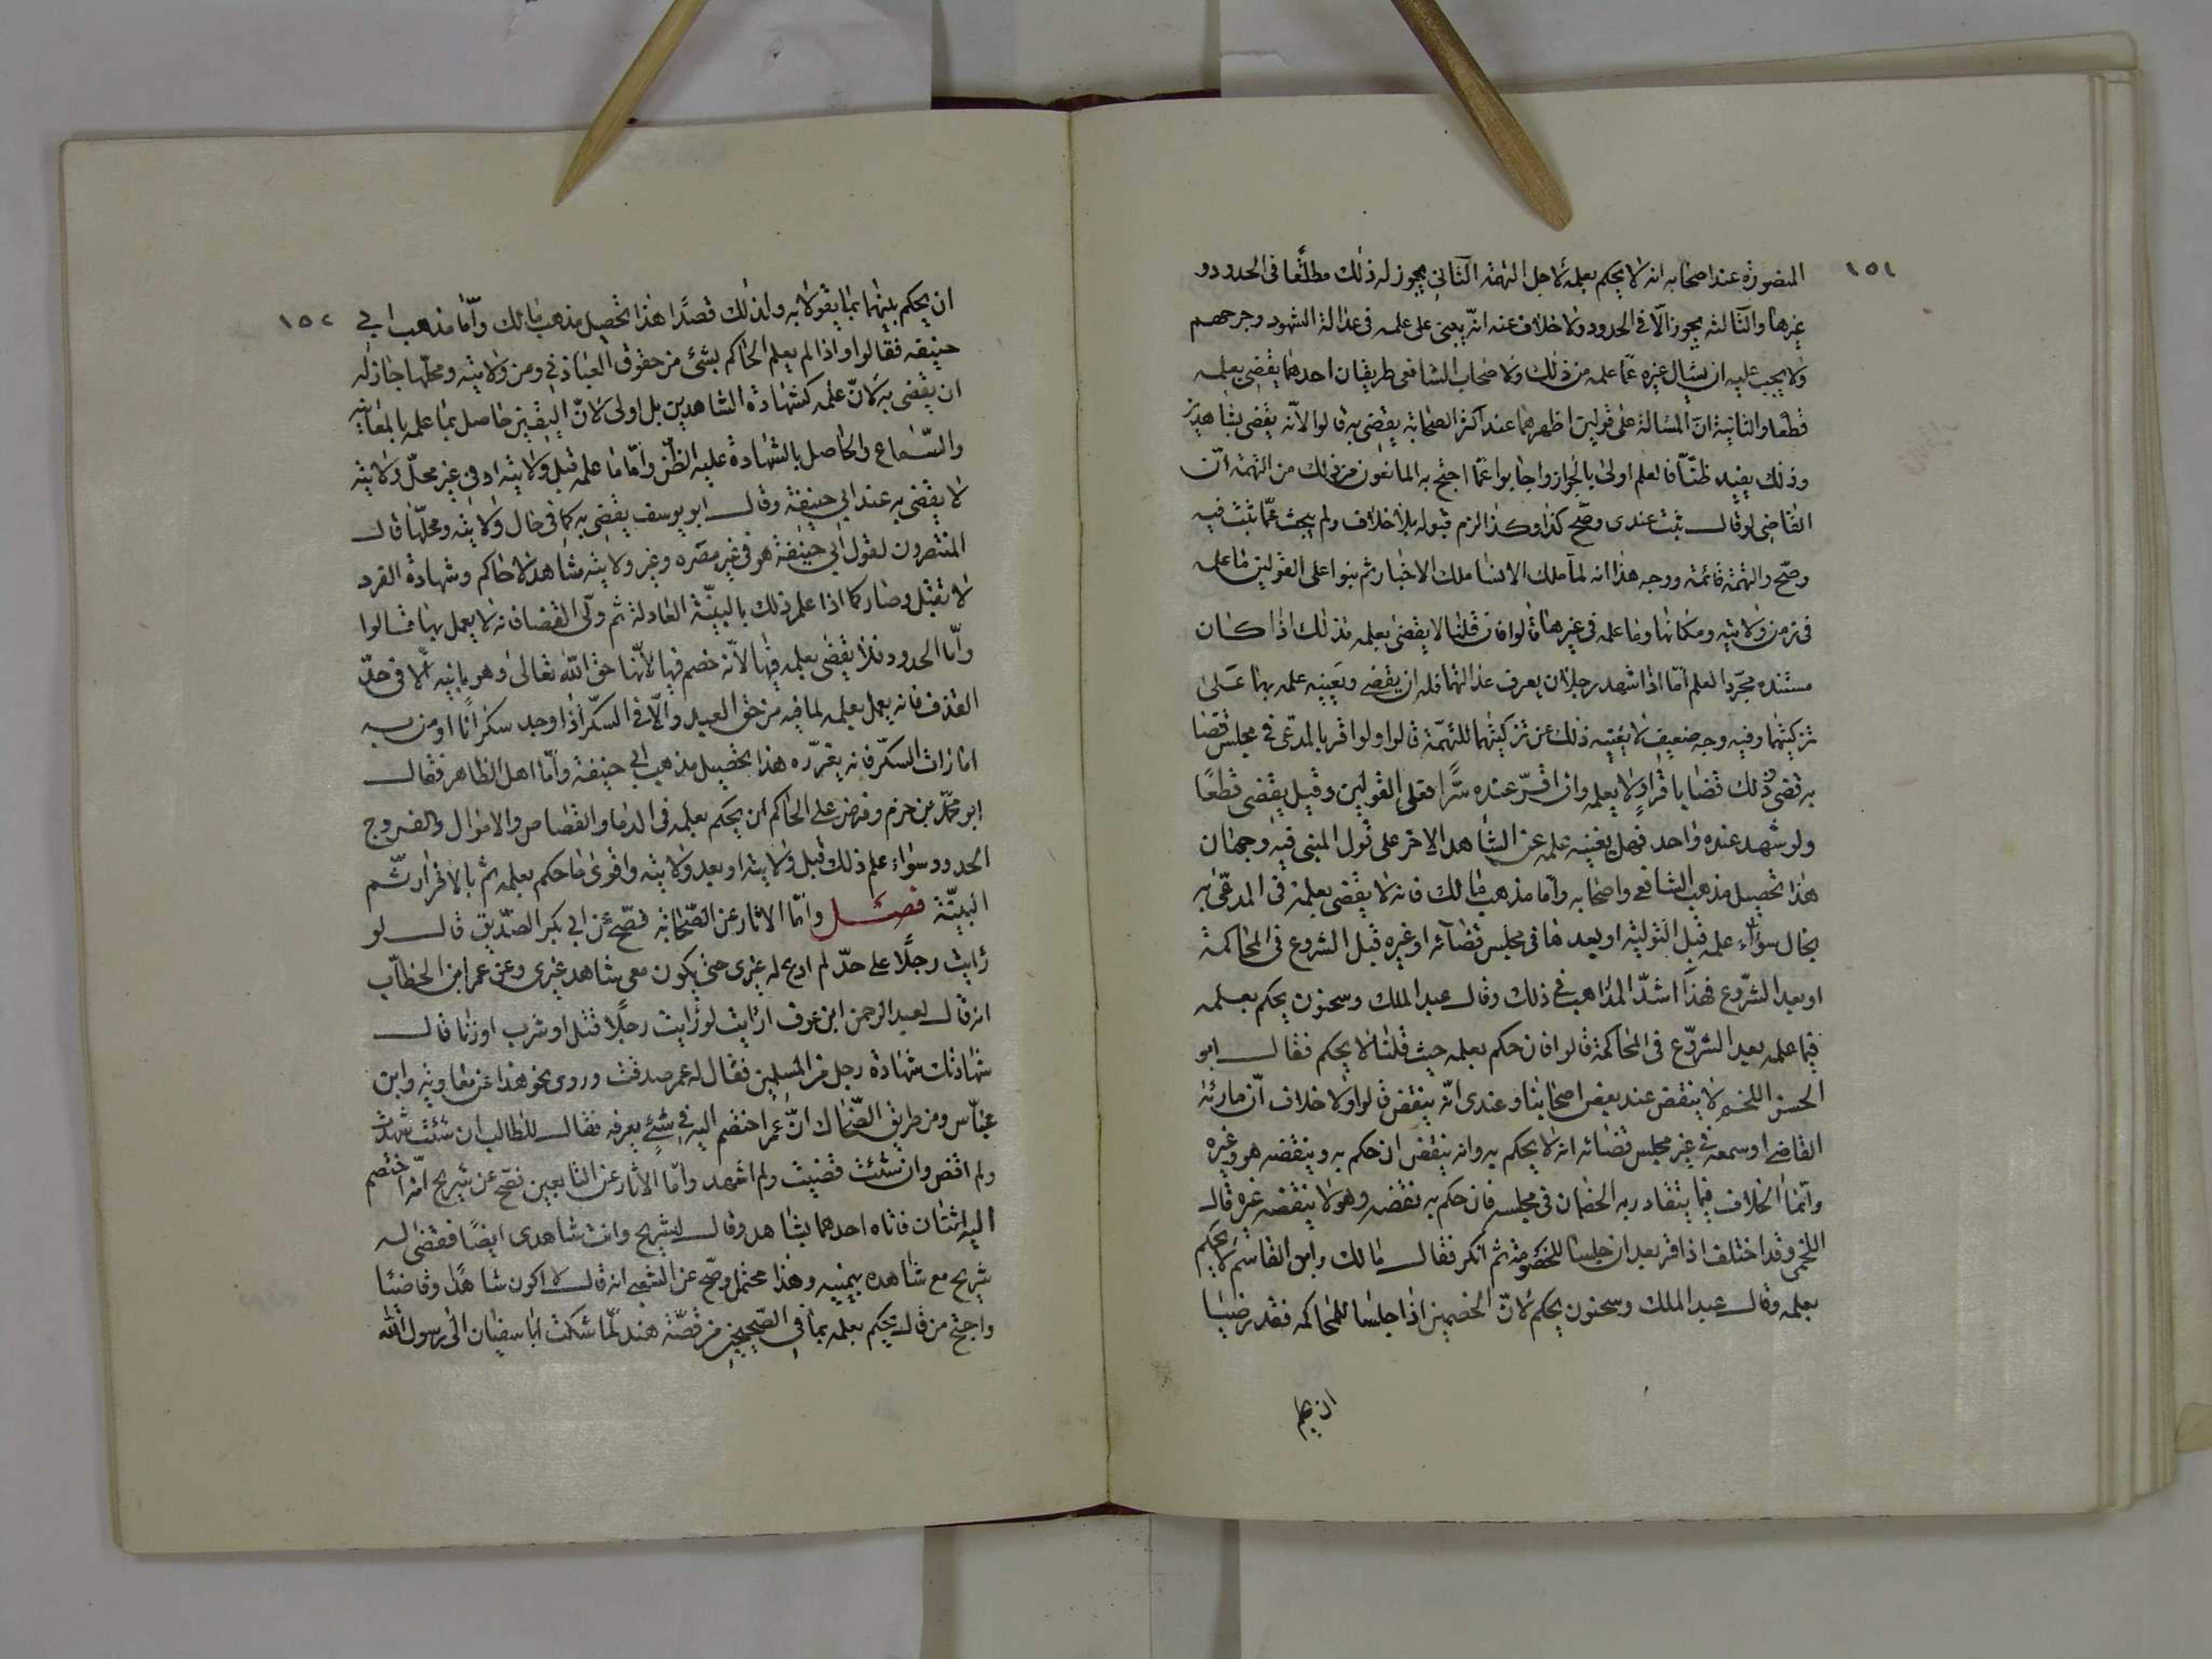 ١٥١
المنصورة عند اصحابه انه لا يحكم بعلمه لاجل التهمة الثاني يجوز له ذلك مطلقا فى الحدود و
غيرها والثالثه يجوز الّا فى الحدود ولا خلاف عنه انّه يبنى على علمه فى عدالة الشهود وجرحهم
ولا يجب عليه ان يسال غيره عمّا علمه من ذلك ولاصحاب الشافعى طريقان احدهما يقضى بعلمه
قطعا والثانية انّ المسالة على قولين اظهرهما عند اكثر الصحابة يقضى به قالوا لانّه يقضى بشاهدين
وذلك يفيد ظنّا فالعلم اولى بالجواز واجابوا عمّا احتج به المانعون من ذلك من التهمة انّ
القاضى لو قال ثبت عندى وصّح كذا وكذا لزم قبوله بلا خلاف ولم يبحث عمّا ثبت فيه
وصحّ والتهمة قائمة ووجه هذا انه لما ملك الانشا ملك الاخبار ثم بنوا على القولين ما علمه
فى زمن ولايته ومكانها وما علمه فى غيرها قالوا فان قلنا لا يقضى بعلمه فذلك اذا كان
مستنده مجرّد العلم امّا اذا شهد رجلان يعرف عدالتهما فله ان يقضى ويغنيه علمه بهما على
تزكيتهما وفيه وجه ضعيف لا يغنيه ذلك عن تزكيتهما للتهمة قالوا ولو اقر بالمدعى فى مجلس قضا
به قضى وذلك قضا باقرار لا بعلمه وان اقرّ عنده سرّا فعلى القولين وقيل يقضى قطعًا
ولو شهد عنده واحد فهل يغنيه علمه عن الشاهد الاخر على قول المبنى فيه وجهان
هذا تحصيل مذهب الشافعى واصحابه وامّا مذهب مالك فانه لا يقضى بعلمه فى المدعى به
بحال سواء علمه قبل التولية او بعدها فى مجلس قضائه او غيره قبل الشروع فى المحاكمة
او بعد الشروع فهذا اشدّ المذاهب فى ذلك وقال عبد الملك وسحنون يحكم بعلمه
فيما علمه بعد الشروع فى المحاكمة قالوا فان حكم بعلمه حيث قلنا لا يحكم فقال ابو
الحسن اللخمى لا ينقض عند بعض اصحابنا وعندى انّه ينقض قالوا ولا خلاف انّ ما رآه
القاضى او سمعه فى غير مجلس قضائه انه لا يحكم به وانه ينقض ان حكم به وينقضه هو وغيره
وانّما الخلاف فيما يتقادر به الخصمان فى مجلسه فان حكم به نقضه هو ولا ينقضه غيره قال
اللخمى وقد اختلف اذا اقر بعد ان جلسا للخصومة ثم انكر فقال مالك وابن القاسم لا يحكم
بعلمه وقال عبد الملك وسحنون يحكم لانّ الخصمين اذا جلسا للمحاكمه فقد رضيا
ان يحكم
١٥٢
ان يحكم بينهما بما يقولانه ولذلك قصدا هذا تحصيل مذهب مالك وامّا مذهب ابى
حنيفه فقالوا واذا لم يعلم الحاكم بشئ من حقوق العباد فى زمن ولايته ومحلّها جاز له
ان يقضى به لانّ علمه كشهادة الشاهدين بل اولى لانّ اليقين حاصل بما علمه بالمعاينة
والسّماع والحاصل بالشهادة غلبه الظنّ وامّا ما علمه قبل ولايته او فى غير محلّ ولايته
لا يقضى به عند ابى حنيفة وقال ابو يوسف يقضى به كما فى حال ولايته ومحلّها قال
المنتصرون لقول ابى حنيفة هو فى غير مصره وغير ولايته شاهد لا حاكم وشهادة الفرد
لا تقبل وصار كما اذا علم ذلك بالبيّنة العادلة ثم ولّى القضا فانه لا يعمل بها قالوا
وامّا الحدود فلا يقضى بعلمه فيها لانّه خصم فيها لانّها حق الله تعالى وهو نايبه الّا فى حدّ
القذف فانه يعمل بعلمه لما فيه من حق العبد والّا فى السكر اذا وجد سكرانا او من به
امارات السكر فانه يعزّره هذا تحصيل مذهب ابى حنيفة وامّا اهل الظاهر فقال
ابو محمّد بن حزم وفرض على الحاكم ان يحكم بعلمه فى الدما والقصاص والاموال والفروج
الحدود سواء علم ذلك قبل ولايته او بعد ولايته واقوى ما حكم بعلمه ثم بالاقرار ثم
البيّنة فصل وامّا الاثار عن الصّحابة فصّح عن ابى بكر الصدّيق قال لو
رايت رجلًا على حدّ لم ادع له غيرى حتى يكون معى شاهد غيرى وعن عمر ابن الخطّاب
انه قال لعبد الرحمن ابن عوف ارايت لو رايت رجلًا قتل او شرب او زنا قال
شهادتك شهادة رجل من المسلمين فقال له عمر صدقت وروى نحو هذا عن معاوية وابن
عبّاس ومن طريق الضّحاك انّ عمر اختصم اليه فى شئ يعرفه فقال للطالب ان شئت شهدت
ولم اقض وان شئت قضيت ولم اشهد وامّا الاثار عن التابعين فصّح عن شريح انّه اختصم
اليه اثنان فاتاه احدهما بشاهد وقال لشريح وانت شاهدى ايضًا فقضى له
شريح مع شاهده بيمينه وهذا محتمل وصح عن الشعبى انه قال لا اكون شاهدًا وقاضيًا
واحتج من قال يحكم بعلمه بما فى الصّحيحين من قصّة هند لّما شكت ابا سفيان الى رسول الله